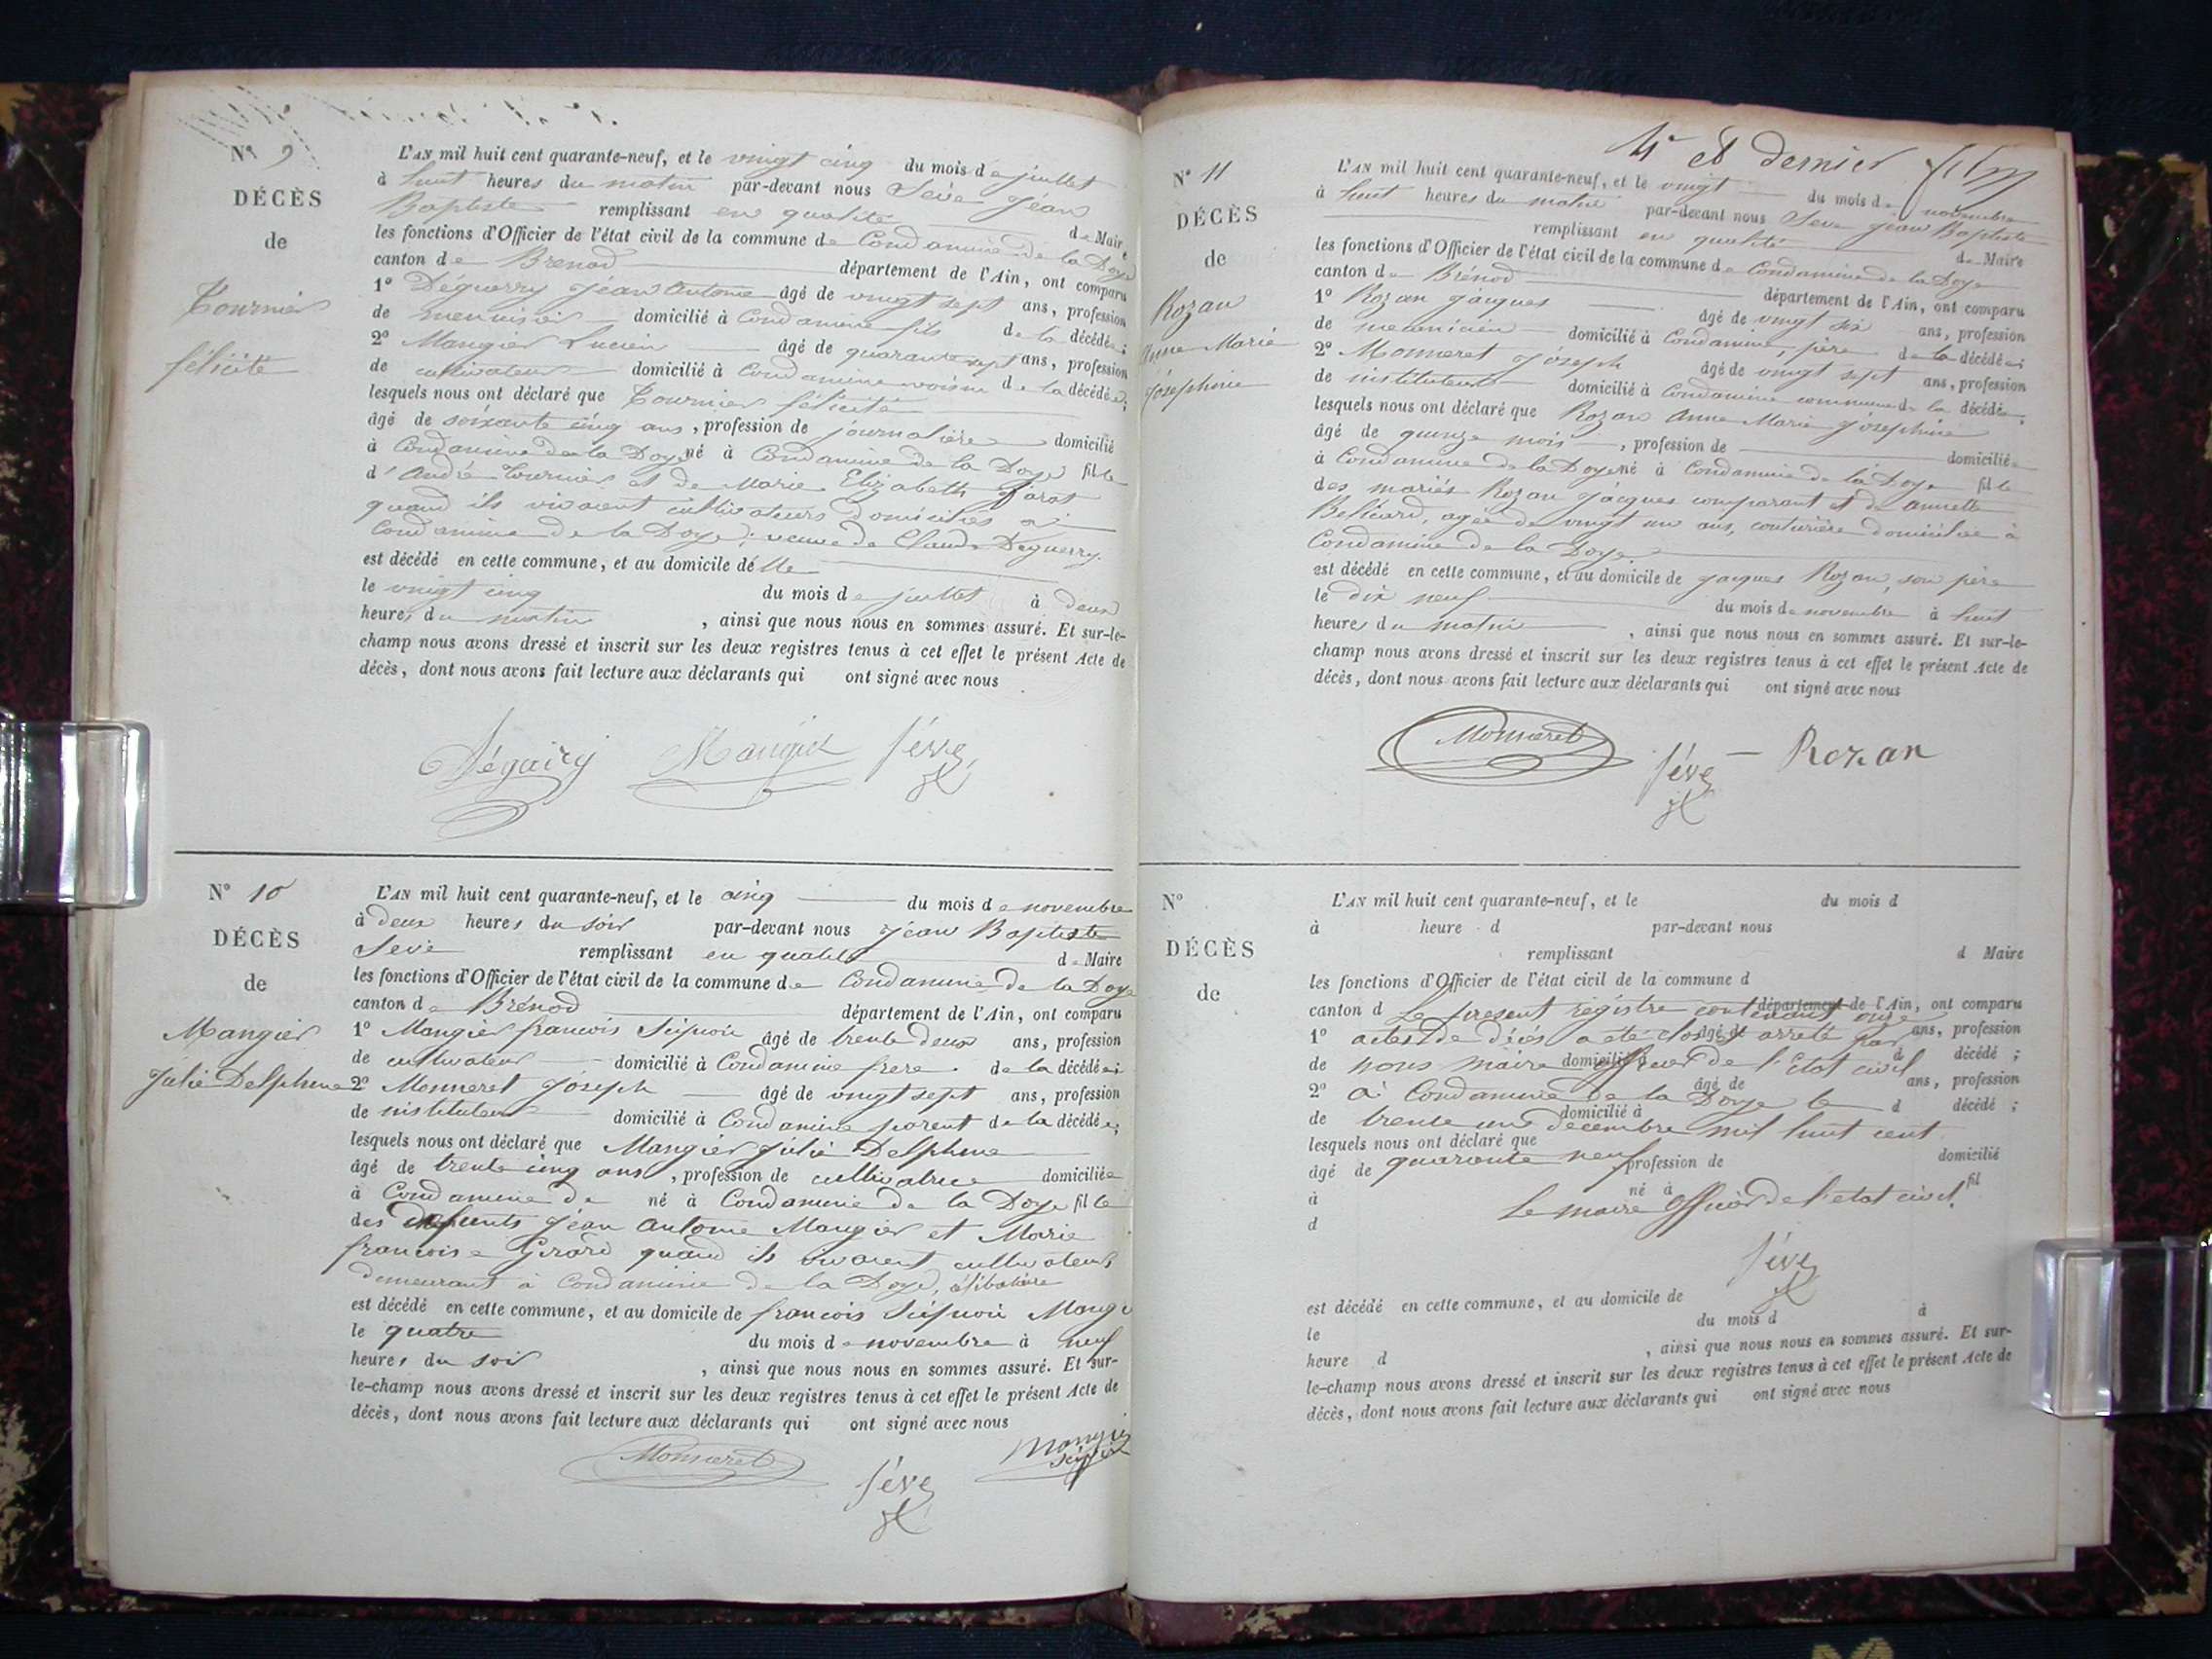 Nº 9
DÉCÈS
de
Tournier
félicité
L'AN mil huit cent quarante-neuf, et le vingt cinq du mois de juillet
à huit heures du matin par-devant nous Sève Jéan
Baptiste remplissant en qualité de Maire
les fonctions d'Officier de l'état civil de la commune de Condamine de la Doye
canton de Brenod département de l'Ain, ont comparu
1º Déguerry Jéan Antoine âgé de vingt sept ans, profession
de menuisier domicilié à Condamine fils de la décédée;
2º Mangier Lucien âgé de quarante sept ans, profession
de cultivateur domicilié à Condamine voisin de la décédée;
lesquels nous ont déclaré que Tournier félicité
âgé de soixante cinq ans, profession de journalière domicilié
à Condamine de la Doye né à Condamine de la Doye fille
d'André Tournier et de Marie Elizabeth Jarat
quand ils vivaient cultivateurs domiciliés à
Condamine de la Doye; veuve de Claude Deguerry.
est décédé en cette commune, et au domicile d'elle
le vingt cinq du mois de juillet à deux
heures du matin, ainsi que nous nous en sommes assuré. Et sur-le-
champ nous avons dressé et inscrit sur les deux registres tenus à cet effet le présent Acte de
décès, dont nous avons fait lecture aux déclarants qui ont signé avec nous
Mangier Séve
Nº 10
DÉCÈS
de
Mangier
Julie Delphine
L'AN mil huit cent quarante-neuf, et le cinq du mois de novembre
à deux heures du soir par-devant nous Jéan Baptiste
Seve remplissant en qualité de Maire
les fonctions d'Officier de l'état civil de la commune de Condamine de la Doye
canton de Brénod département de l'Ain, ont comparu
1º Mangier francois Scipion âgé de trente deux ans, profession
de cultivateur domicilié à Condamine frere de la décédée;
2º Monneret Jóseph âgé de vingt sept ans, profession
de instituteur domicilié à Condamine parent de la décédée;
lesquels nous ont déclaré que Mangier Julie Delphine
âgé de trente cinq ans, profession de cultivatrice domiciliée
à Condamine de né à Condamine de la Doye fille
des défunts Jéan Antoine Mangier et Marie
francoise Girard quand ils vivaient cultivateurs
demeurant à Condamine de la Doye, célibataire
est décédé en cette commune, et au domicile de francois Scipion Mangi
le quatre du mois de novembre à neuf
heures du soir, ainsi que nous nous en sommes assuré. Et sur-
le-champ nous avons dressé et inscrit sur les deux registres tenus à cet effet le présent Acte de
décès, dont nous avons fait lecture aux déclarants qui ont signé avec nous
Monneret Séve Mangier
4e et dernier
Nº 11
DÉCÈS
de
Rozan
Anne Marie
Joséphine
L'AN mil huit cent quarante-neuf, et le vingt du mois de novembre
à huit heures du matin par-devant nous Seve Jéan Baptiste
remplissant en qualité de Maire
les fonctions d'Officier de l'état civil de la commune de Condamine de la Doye
canton de Brénod département de l'Ain, ont comparu
1º Rozan Jacques âgé de vingt six ans, profession
de mecanicien domicilié à Condamine, père de la décédée;
2º Monneret Jóseph âgé de vingt sept ans, profession
de instituteur domicilié à Condamine commune de la décédée;
lesquels nous ont déclaré que Rozan Anne Marie Joséphine
âgé de quinze mois, profession de domiciliée
à Condamine de la Doye né à Condamine de la Doye fille
des mariés Rozan Jacques comparant et de annette
Belliard, agée de vingt un ans, couturière domiciliée à
Condamine de la Doye
est décédé en cette commune, et au domicile de Jacques Rozan, son père
le dix neuf du mois de novembre à huit
heures du matin, ainsi que nous nous en sommes assuré. Et sur-le-
champ nous avons dressé et inscrit sur les deux registres tenus à cet effet le présent Acte de
décès, dont nous avons fait lecture aux déclarants qui ont signé avec nous
Monneret Séve Rozan
Nº
DÉCÈS
de
L'AN mil huit cent quarante-neuf, et le du mois d
à heure d par-devant nous
remplissant d Maire
les fonctions d'Officier de l'état civil de la commune d
canton d département de l'Ain, ont comparu
Le present régistre contenant onze
1º âgé de ans, profession
actes de décés a été clos et arrêté par
de domicilié à d décédé;
nous maire officier de l'Etat civil
2º âgé de ans, profession
à Condamine de la Doye le
de domicilié à d décédé;
trente un décembre mil huit cent
lesquels nous ont déclaré que
âgé de profession de domicilié
quarante neuf
à né à fil
Le maire officier de l'etat civil.
d
Séve
est décédé en cette commune, et au domicile de
le du mois d à
heure d, ainsi que nous nous en sommes assuré. Et sur-
le-champ nous avons dressé et inscrit sur les deux registres tenus à cet effet le présent Acte de
décès, dont nous avons fait lecture aux déclarants qui ont signé avec nous